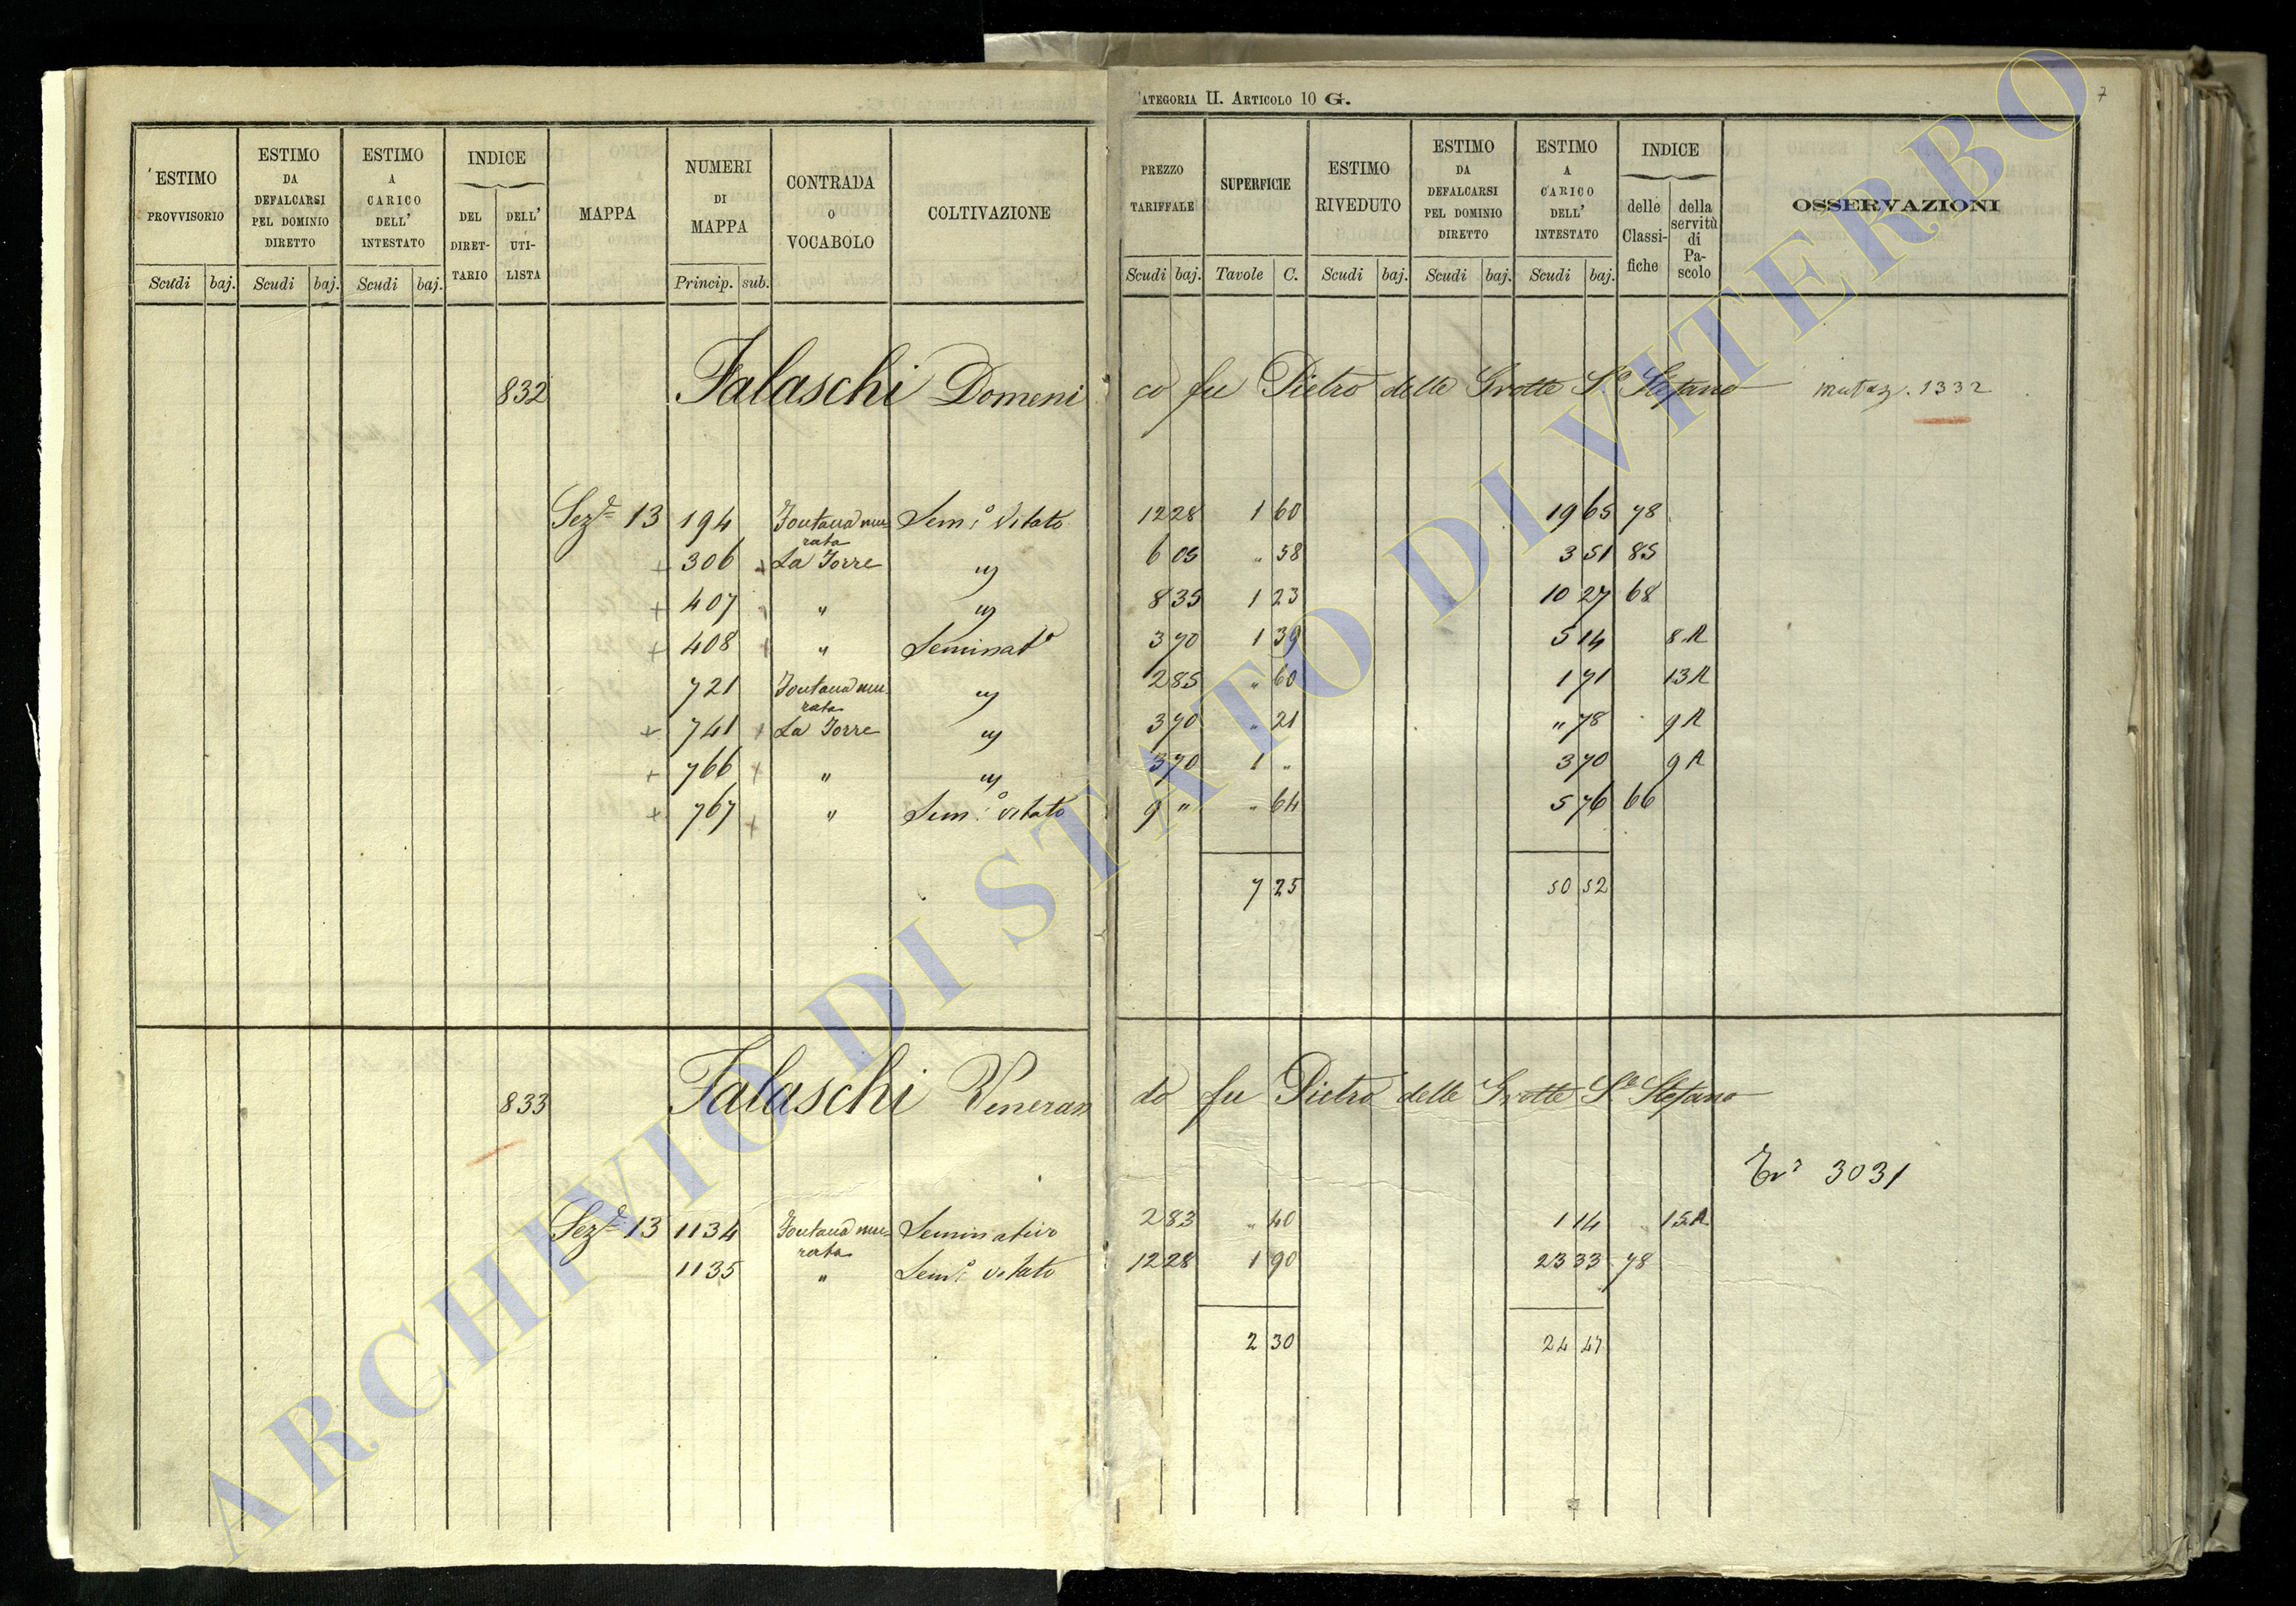 CATEGORIA II. ARTICOLO 10 G.
7
ESTIMO PROVVISORIO Scudi baj.
ESTIMO DA DEFALCARSI PEL DOMINIO DIRETTO Scudi baj.
ESTIMO A CARICO DELL' INTESTATO Scudi baj.
INDICE DEL DIRETTARIO DELL' UTILISTA
MAPPA
NUMERI DI MAPPA Princip. sub.
CONTRADA O VOCABOLO
COLTIVAZIONE
PREZZO TARIFFALE Scudi baj.
SUPERFICIE Tavole C.
ESTIMO RIVEDUTO Scudi baj.
ESTIMO DA DEFALCARSI PEL DOMINIO DIRETTO Scudi baj.
ESTIMO A CARICO DELL' INTESTATO Scudi baj.
INDICE delle Classifiche della servitù di Pascolo
OSSERVAZIONI
832 Falaschi Domenico fu Pietro delle Grotte S.o Stefano mutaz. 1332
Sez.e 13 194 Fontana murata Sem.o Vitato 12 28 1 60 19 65 78
+ 306 + La Torre " 6 05 " 58 3 51 85
+ 407 + " " 8 35 1 23 10 27 68
+ 408 + " Seminat.o 3 70 1 39 5 14 8 R
721 Fontana murata " 2 85 " 60 1 71 13 R
+ 741 + La Torre " 3 70 " 21 " 78 9 R
+ 766 + " " 3 70 1 " 3 70 9 R
+ 767 + " Sem.o vitato 9 " " 64 5 76 66
7 25 50 52
833 Falaschi Venerando fu Pietro delle Grotte S.o Stefano
3031
Sez.e 13 1134 Fontana murata Seminativo 2 83 " 40 1 14 15 R
1135 " Sem.o vitato 12 28 1 90 23 33 78
2 30 24 47
ARCHIVIO DI STATO DI VITERBO